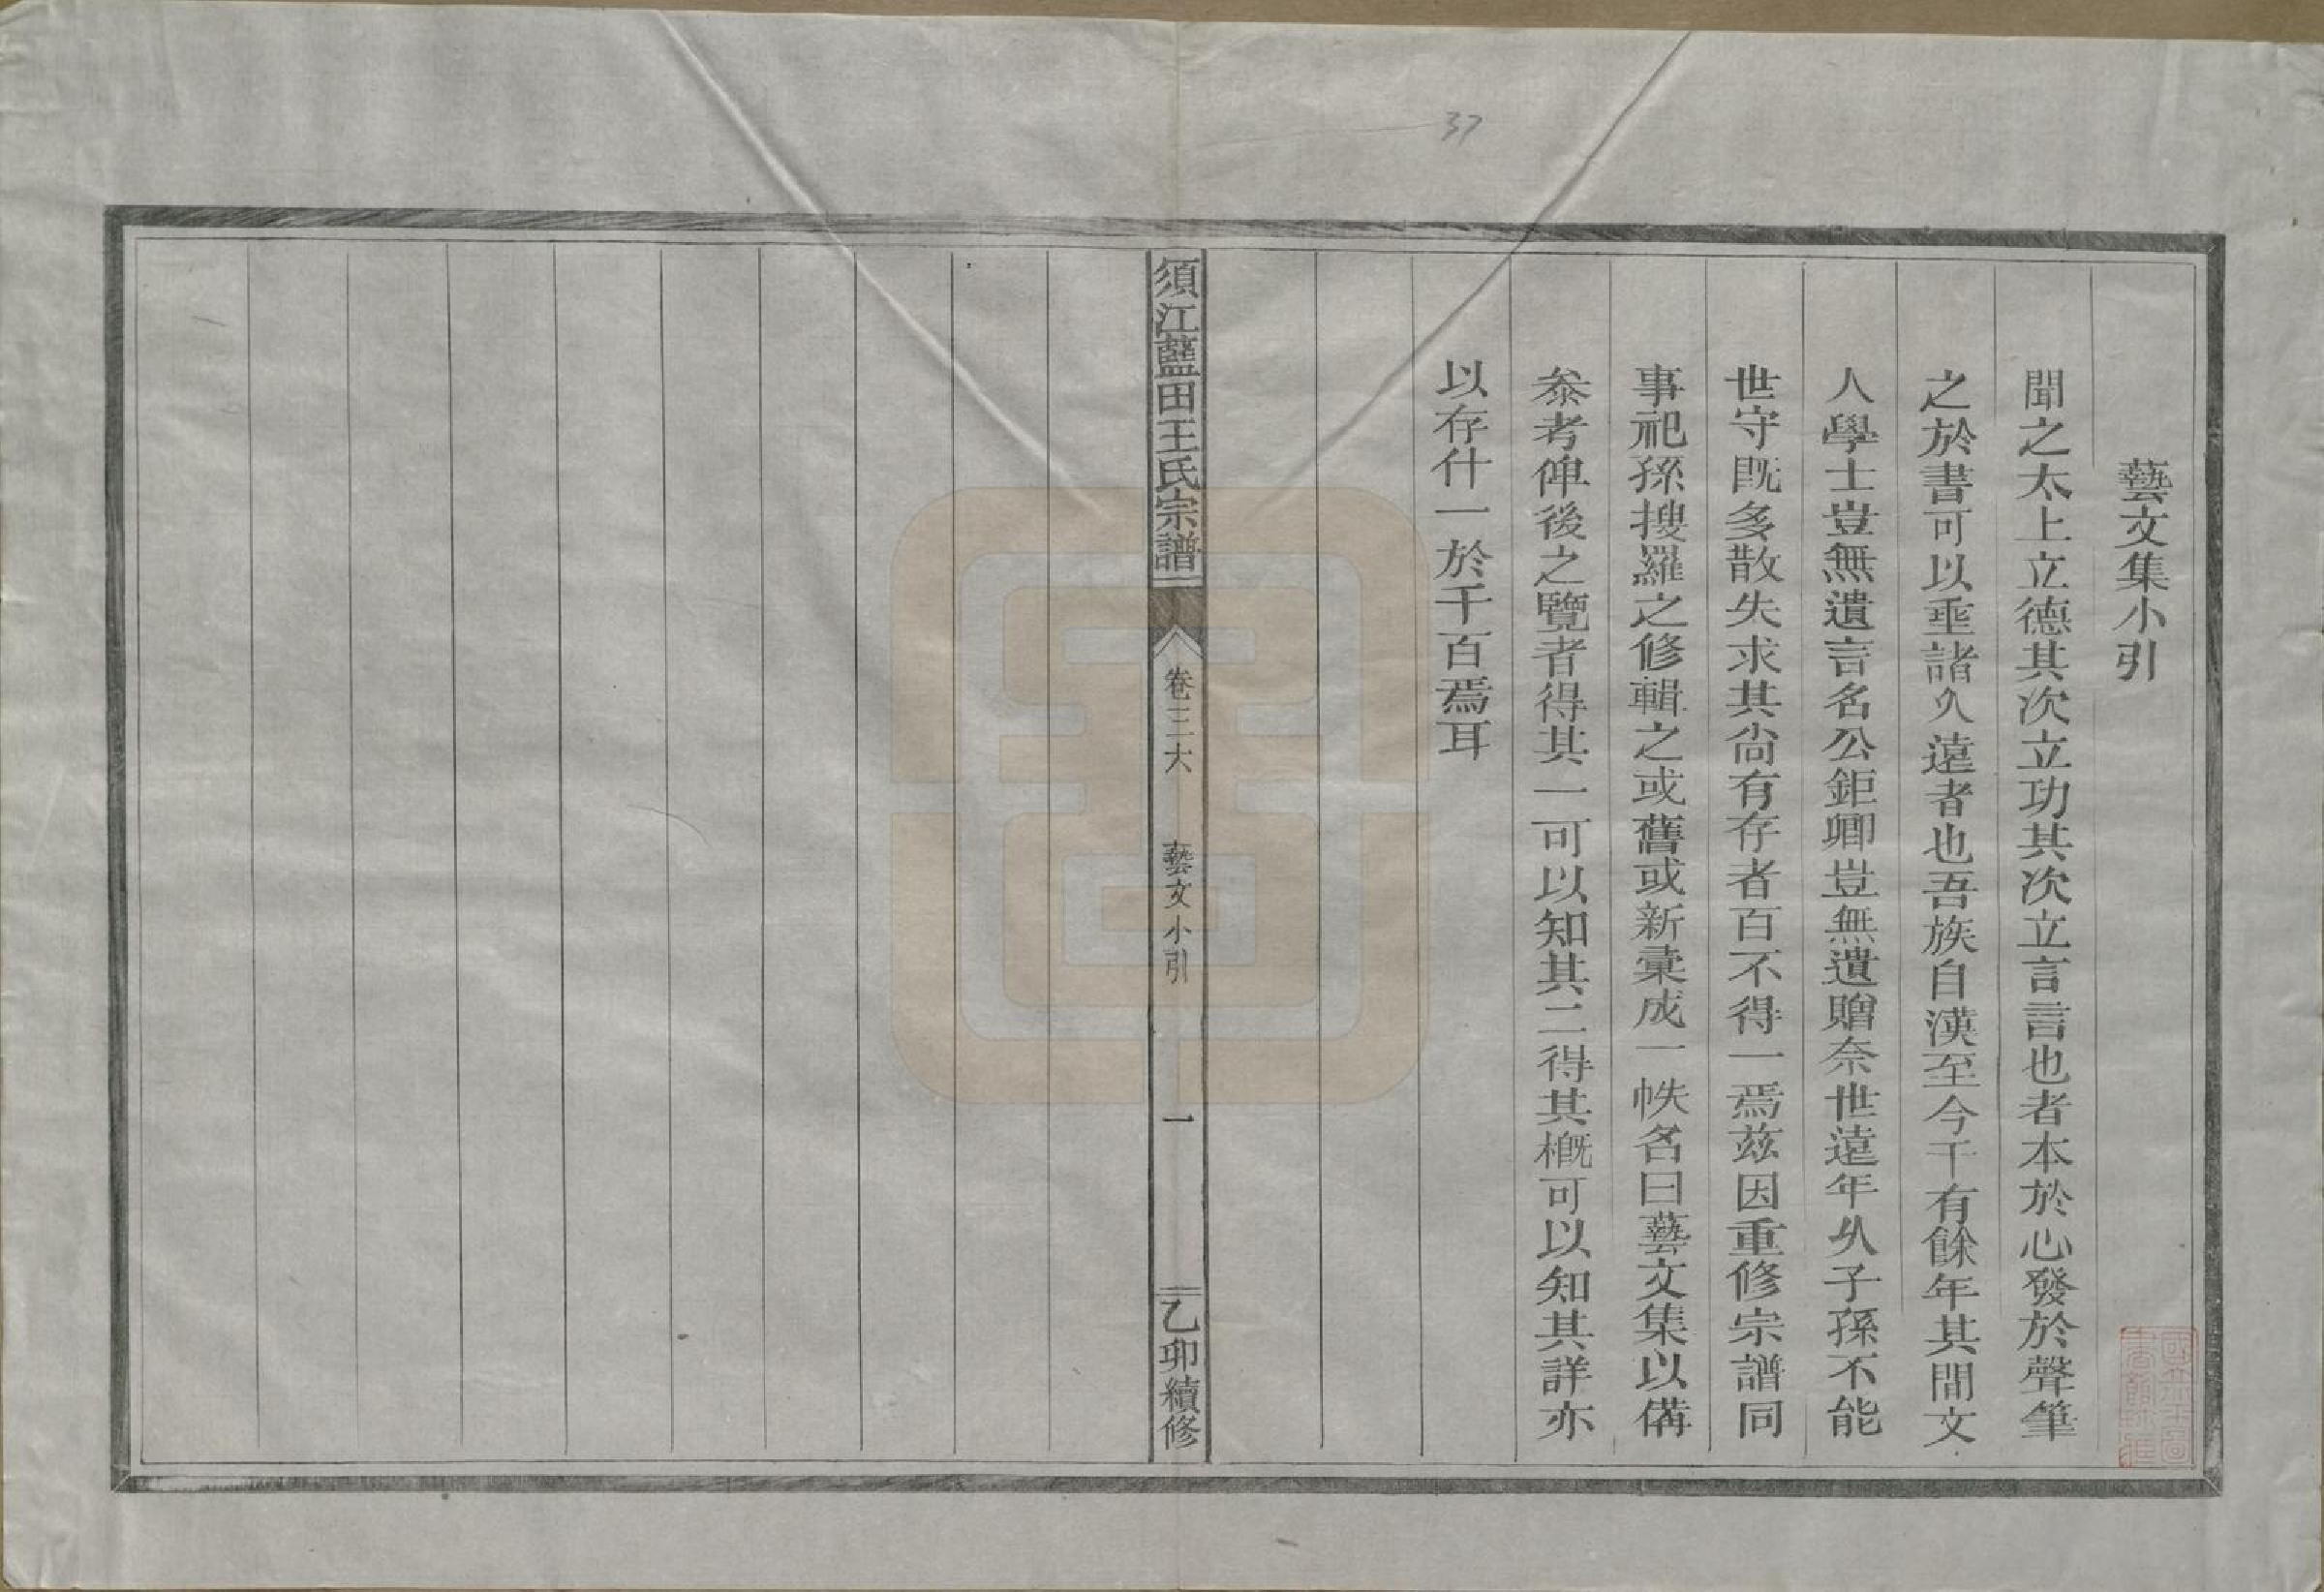 藝文集小引
聞之太上立德其次立功其次立言言也者本於心發於聲筆
之於書可以垂諸久遠者也吾族自漢至今千有餘年其間文
人學士豈無遺言名公鉅卿豈無遺贈奈世遠年久子孫不能
世守既多散失求其尙有存者百不得一焉茲因重修宗譜同
事祀孫搜羅之修輯之或舊或新彙成一帙名曰藝文集以備
叅考俾後之覽者得其一可以知其二得其槪可以知其詳亦
以存什一於千百焉耳
須江藍田王氏宗譜
卷三六
藝文小引
一
乙卯續修
37